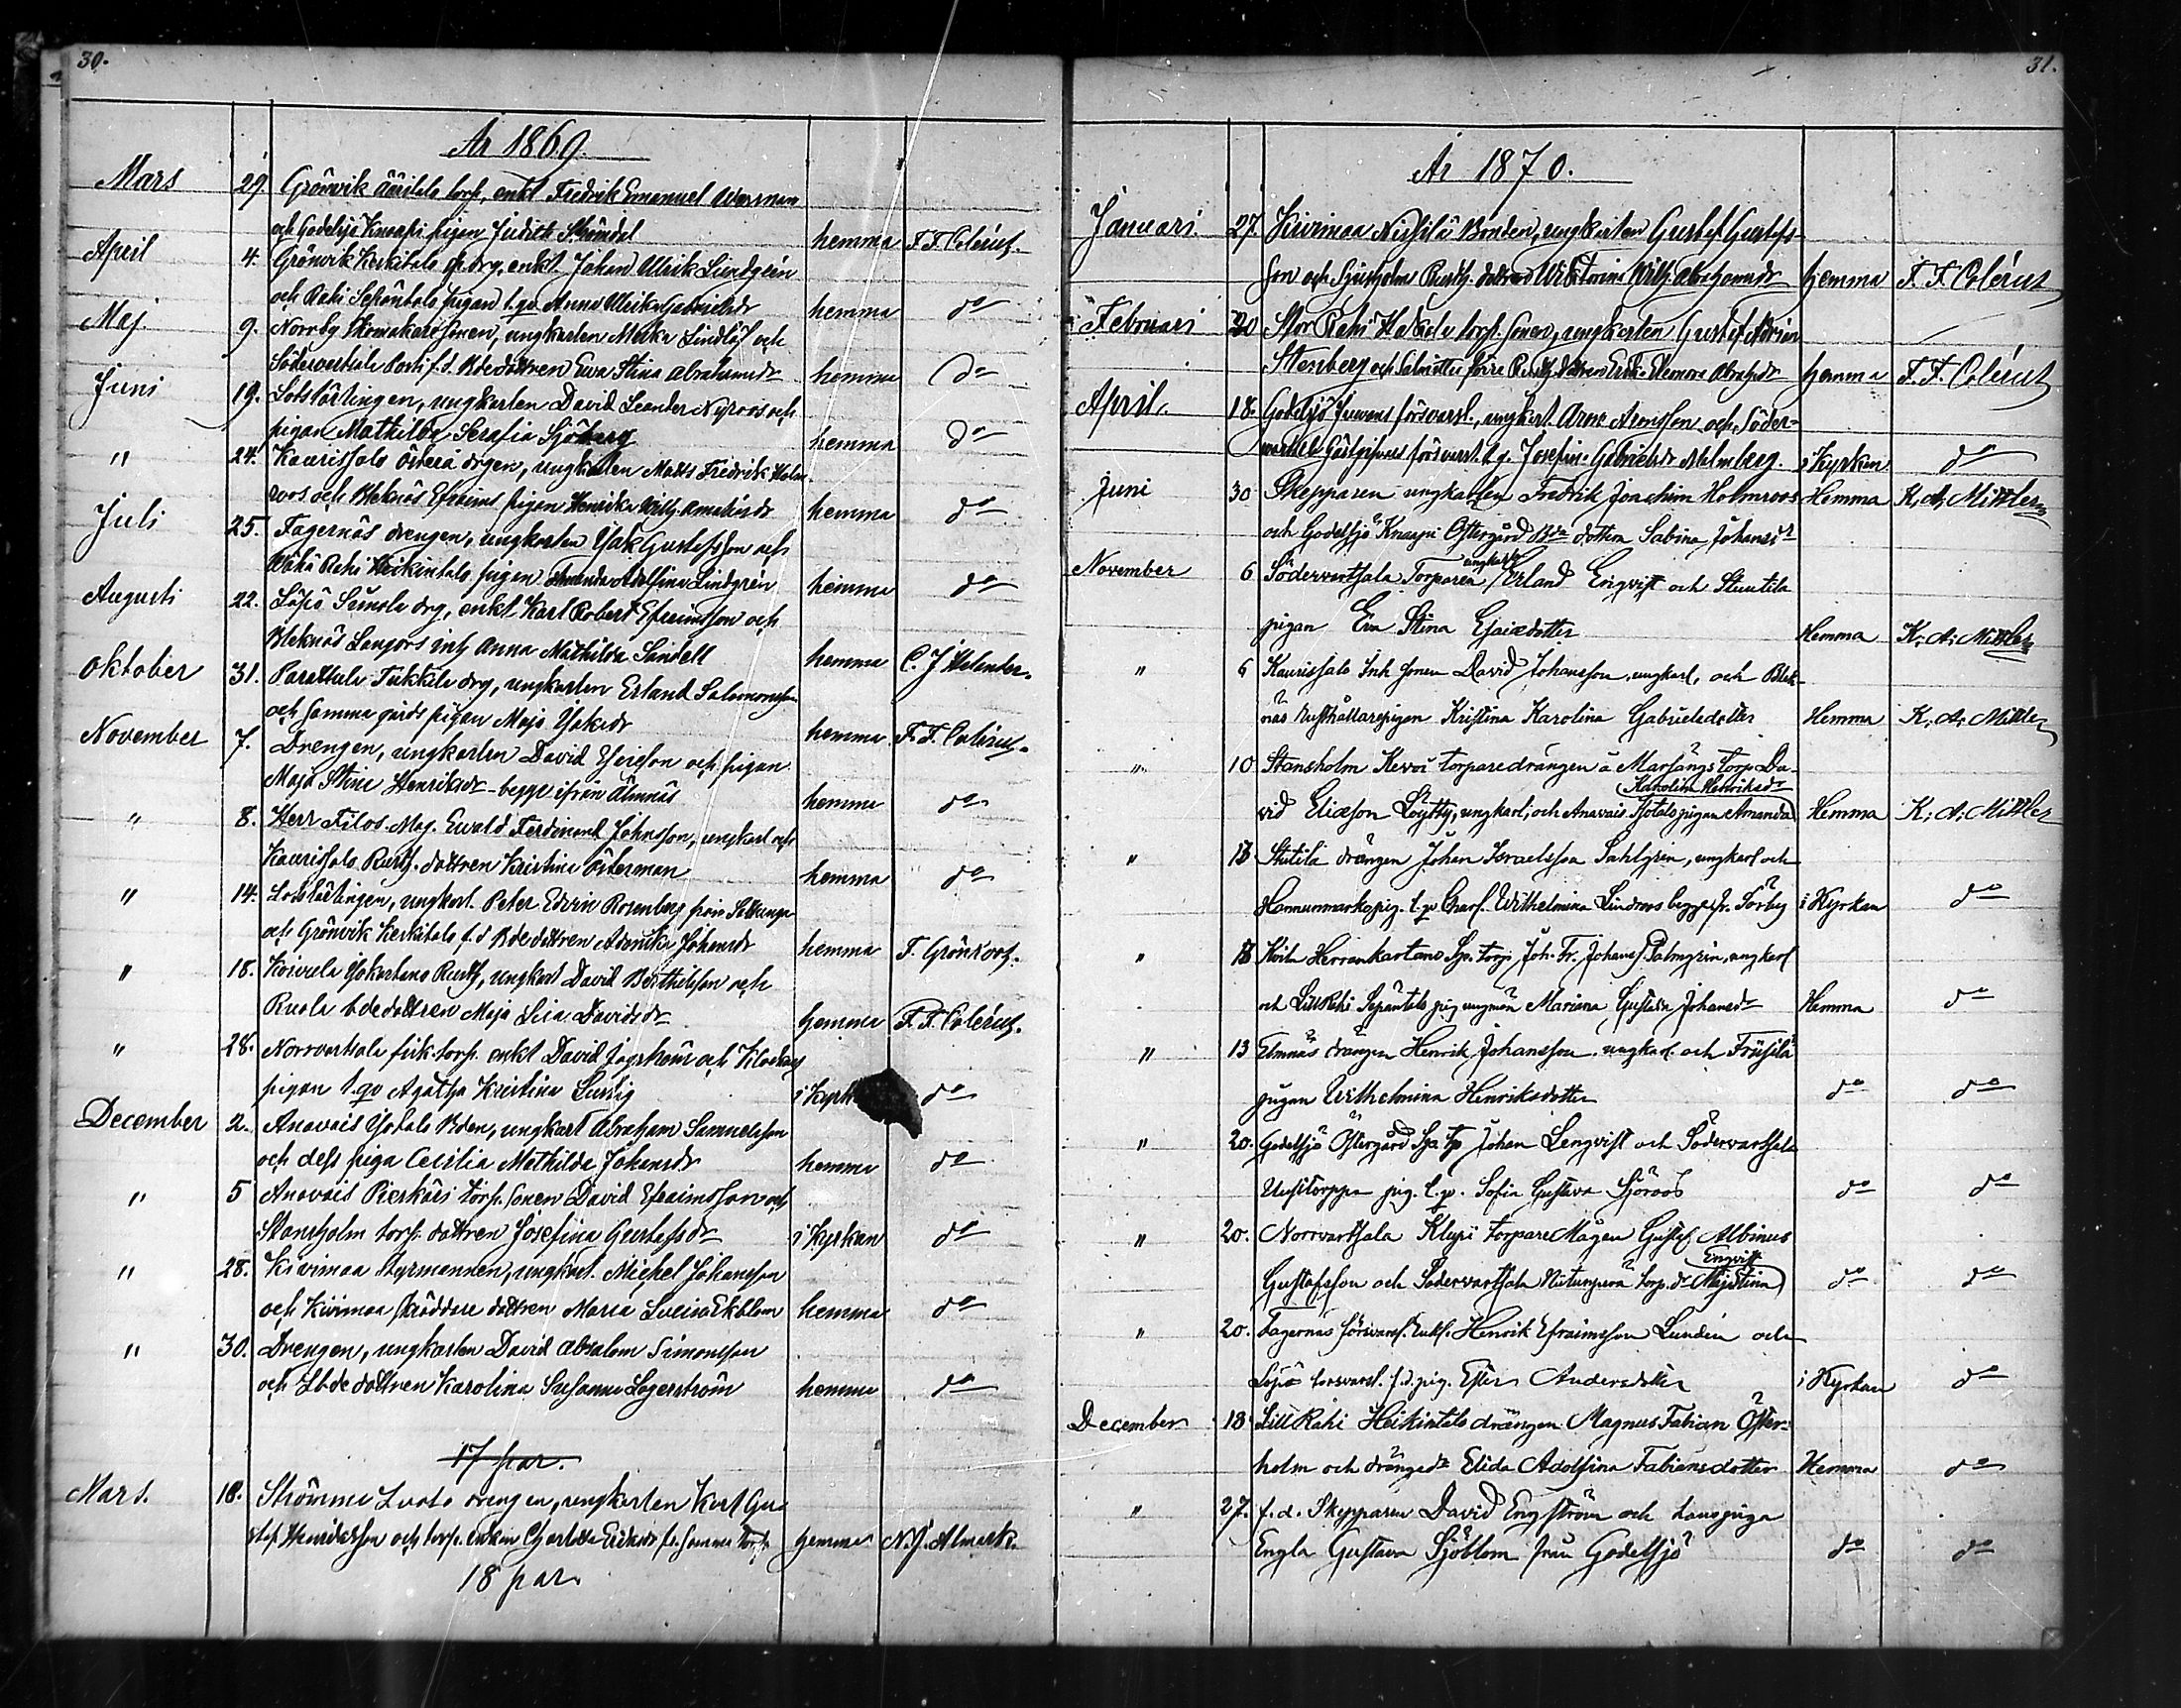 30.
År 1869.
Mars 29 Grönvik torp. enkl Fredrik Emanuel
och Godelsjö Knaapi pigan Judith Strömdal hemma F. F. Colérus.
April 4. Grönvik Kerkitalo drg, enkl. Johan Ulrik Lindgrén
och Rahi Seppäntalo pigan t.qv. Anna Ulrika Gabrielsdr hemma do
Maj 9. Norrby Skomakaresonen, ungkarlen Lindlöf och
Södervartsala f.d. Bdedottren Ewa Stina Abrahamsdr hemma do
Juni 19. Lotslärlingen, ungkarlen David Leander Nyroos och
pigan Mathilda Serafia Sjöberg hemma do
" 24. Kaurissalo drgen, ungkarlen Matts Fredrik Holm-
roos och Wleknäs Efraims pigan Henrika Wilh. hemma do
Juli 25. Fagernäs drengen, ungkarlen Isak Gustafsson och
Rahi Heikintalo pigan Amanda Adolfina Lindgrén hemma do
Augusti 22. Löpö drg, enkl. Karl Robert Efraimsson och
inh Anna Mathilda Sandell hemma C. J. Helander.
Oktober 31. Parattula Tukkila drg, ungkarlen Erland Salomonsson
och samma gårds pigan Maja Isaksdr hemma F. F. Colérus.
November 7. Drengen, ungkarlen David Esaiesson och pigan
Maja Stina Henriksdr begge ifrån Elmnäs hemma do
" 8. Herr Filos. Mag. Ewald Ferdinand Johnsson, ungkarl och
Kaurissalo Rusth. dottren Kristina Österman hemma do
" 14. Lotslärlingen, ungkarl. Peter Edvin Rosenberg från
och Grönvik Kerkitalo f.d Bdedottren Adamika Johansdr hemma F. Grönroos.
" 18. Koivula Rusth, ungkarl David Berthelsson och
Ruola bdedottren Maja Lisa Davidsdr hemma F. F. Colérus.
" 28. Norrvartsala torp. enkl David Lagerström och
pigan t.qv Agatha Kristina Lustig i Kyrk do
December 2. Anavais Bden, ungkarl Abraham Samuelsson
och dess piga Cecilia Mathilda Johansdr hemma do
" 5 Anavais torp. sonen David Efraimsson och
Stansholm torp. dottren Josefina Gustafsdr i Kyrkan do
" 28. Kivimaa Styrmannen, ungkarl. Michel Johansson
och Kivimaa skräddare dottren Maria Lovisa Ekblom hemma do
" 30. Drengen, ungkarlen David Absalom Simonsson
och Lbde dottren Karolina Susanna Lagerström hemma do
17 par.
Mars. 18. Strömma drengen, ungkarlen Karl Gu-
staf Henriksson och torp. enkan Charlotta samma torp hemma N. J. Almark.
18 par
31.
År 1870.
Januari 27. Kivimaa Nissilä Bonden, ungkarlen Gustaf Gustafs-
son och Rusth. dottren Wiktorina Wilh. Abrahamsdr hemma F. F. Colérus
Februari 20 Stor Rahi Heikola torp. sonen, ungkarlen Gustaf Adrian
Stenberg och Rusth. dottren Erika Eleonora Abrahsdr hemma F. F. Colérus
April. 18. Godelsjö försvarsl., ungkarl. Aron Aronsson och Söder-
vartsala Gästgifvars försvarsl. t.q. Josefin. Gabrielsdr Malmberg. i Kyrkan do
Juni 30 Skepparen ungkarlen Fredrik Joachim Holmroos Hemma K. A. Mittler
och Godelsjö Knaapi Östergård Bde dottern Sabina Johansdr
November 6 Södervartsala Torparen ungkarl Erland Engvist och Stuutila
pigan Eva Stina Esaiedotter Hemma K. A. Mittler
" 6 Kaurissalo Inh sonen David Johansson, ungkarl, och Blek-
näs Rusthållarepigan Kristina Karolina Gabrielsdotter Hemma K. A. Mittler
" 10 Stansholm Kevoi torparedrängen a Marsängs torp Da-
Karolina Henriksdr
vid Eliæson Löytty, ungkarl, och Anavais pigan Amanda Hemma K. A. Mittler
" 13 Stutila drängen Johan Israelsson Sahlgrén, ungkarl och
pig. t.qv Charl. Wilhelmina Lindroos begge fr. Sörby i Kyrkan do
" 13 Herrankartano torp Joh. Fr. Johans. Palmgrén, ungkarl
och Lill Rahi Seppäntalo pig Mariana Gustava Johansdr Hemma do
" 13 Elmnäs drängen Henrik Johansson. ungkarl. och Früsilä
pigan Wilhelmina Henriksdotter do do
" 20. Godelsjö Östergård Johan Lengvist och Södervartsala
Uusitorppa pig. t.qv. Sofia Gustava Sjöroos do do
" 20. Norrvartsala Klupi torpare Mågen Gustaf Albinus
Engvist
Gustafsson och Södervartsala torp. dr Maja Stina do do
" 20. Fagernäs försvarsl. Enkl. Henrik Efraimsson Lundén och
Löpö försvarsl. f.d. pig. Ester Andersdotter i Kyrkan do
December 18 Lill Rahi Heikintalo drängen Magnus Fabian Öster-
holm och drängedr Elida Adolfina Fabiansdotter Hemma do
" 27. f. d. Skepparen David Engström och hans piga
Engla Gustava Sjöblom från Godelsjö do do